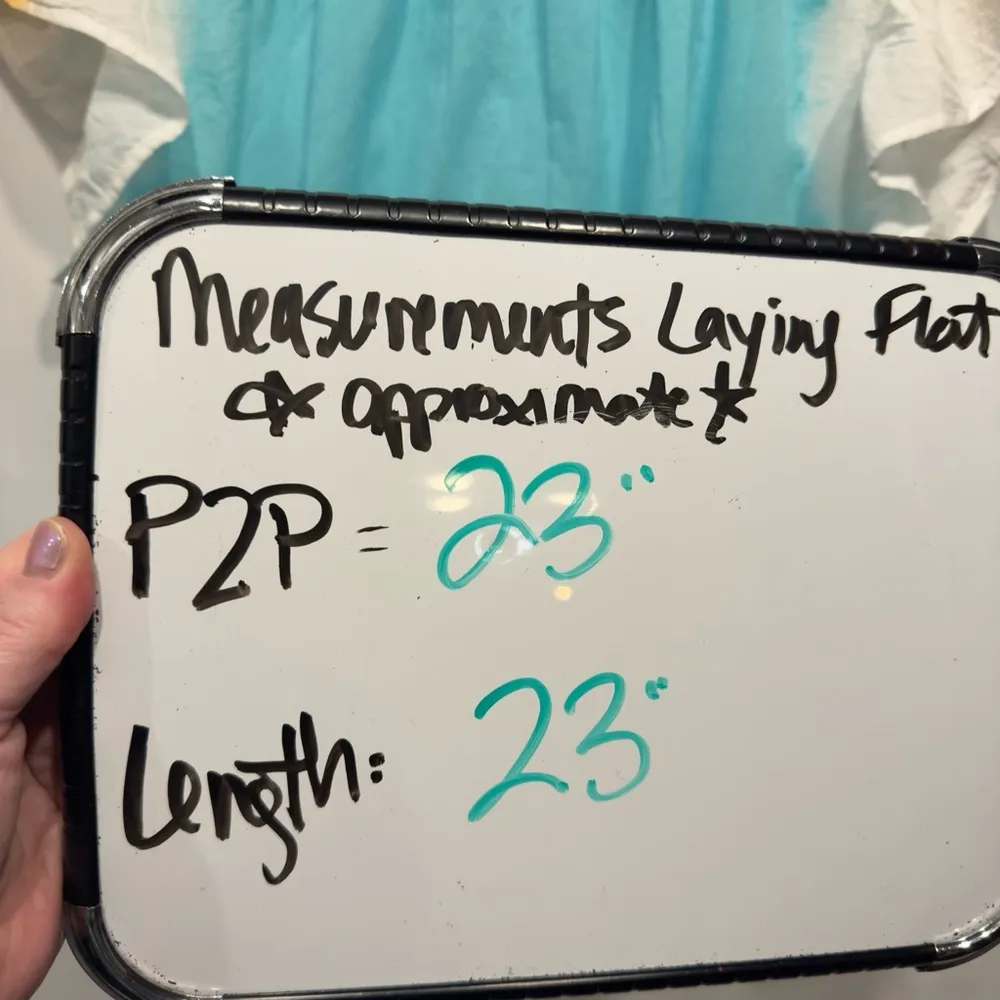 Measurements Laying Flat
* approximate *
P2P = 23"
Length: 23"